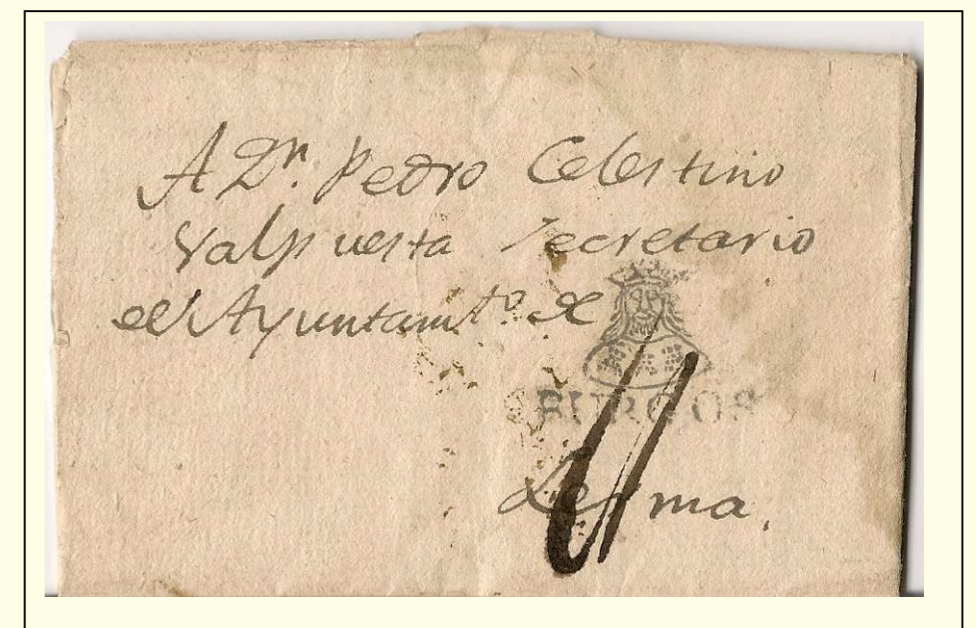 A Dn. Pedro Celestino
Valpuesta Secretario
del Ayuntamto. de
BURGOS
Lerma.